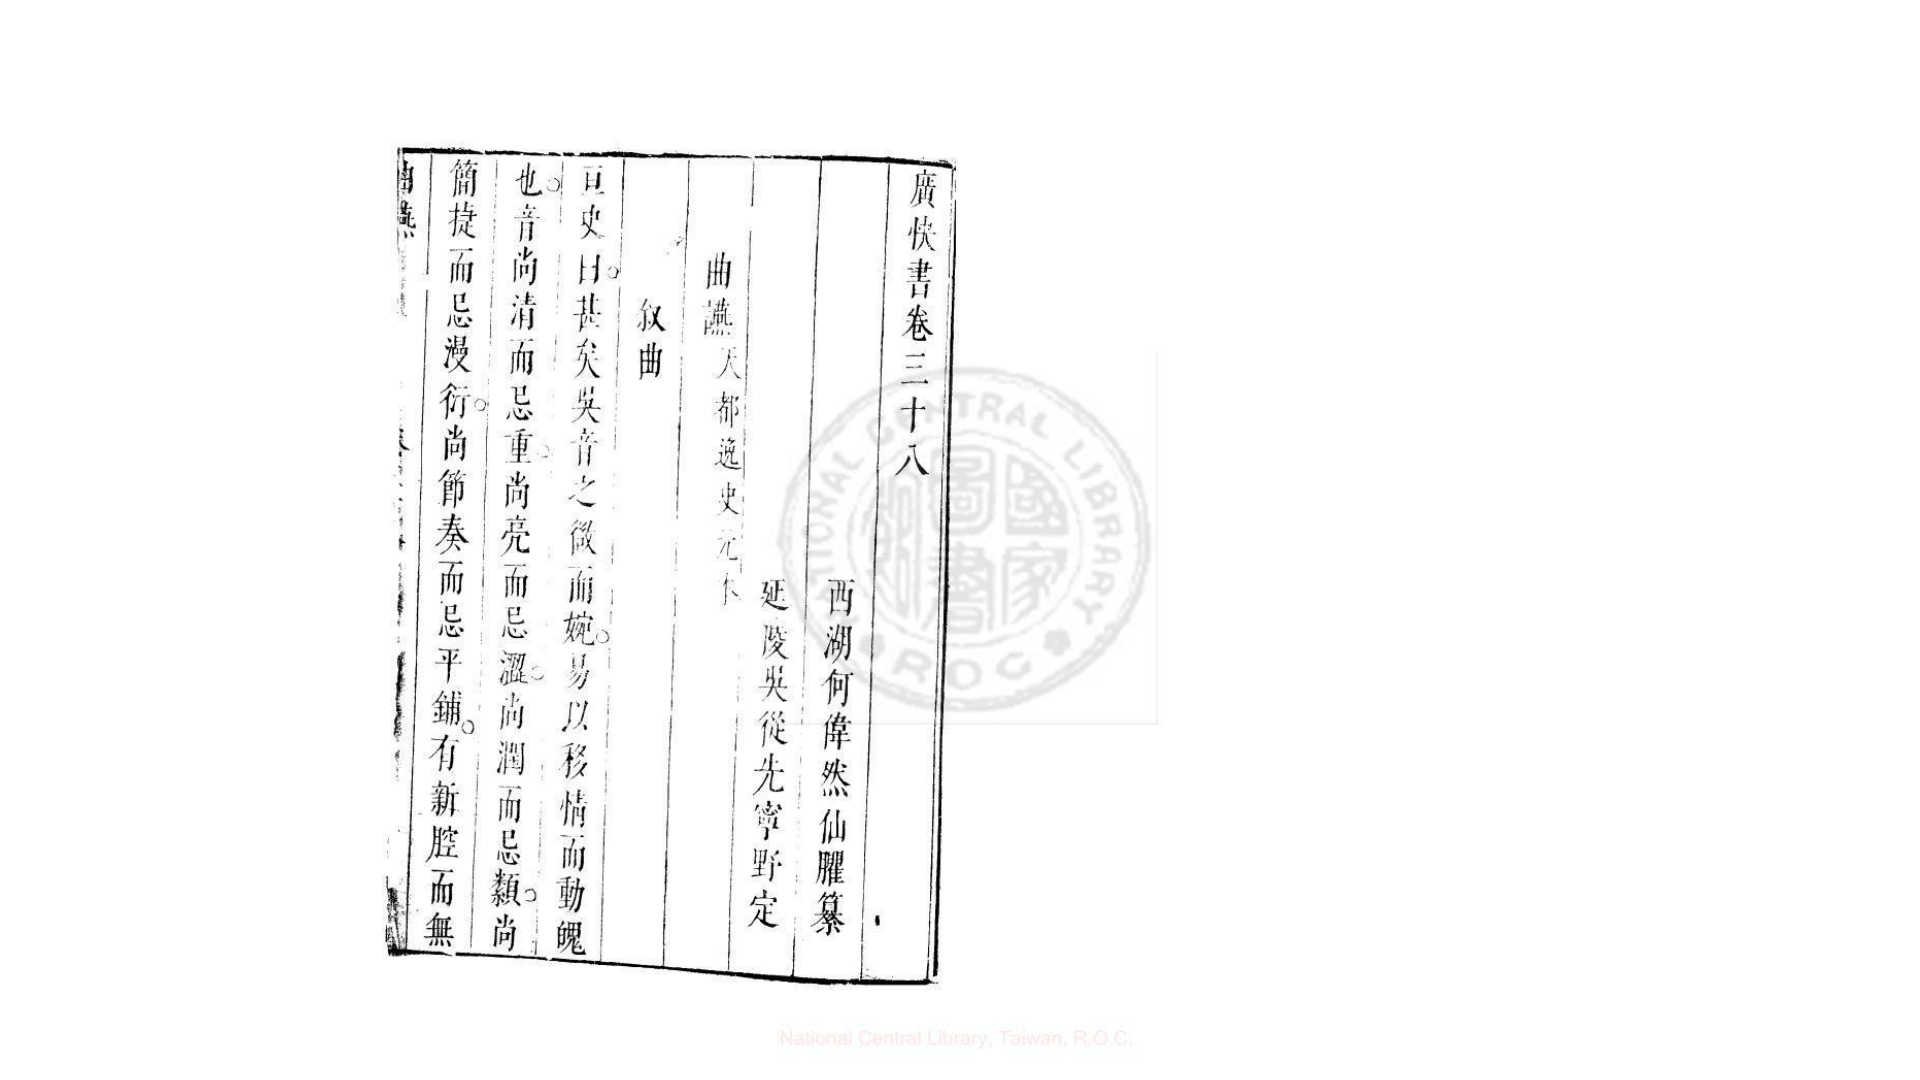 廣快書卷三十八
西湖何偉然仙臞纂
延陵吳從先寧野定
曲讌 天都逸史元
叙曲
亘史曰甚矣吳音之微而婉易以移情而動魄
也音尚清而忌重尚亮而忌澀尚潤而忌纇尚
簡捷而忌漫衍尚節奏而忌平鋪有新腔而無
曲讌
National Central Library, Taiwan, R.O.C.
NATIONAL CENTRAL LIBRARY
ROC
國家圖書